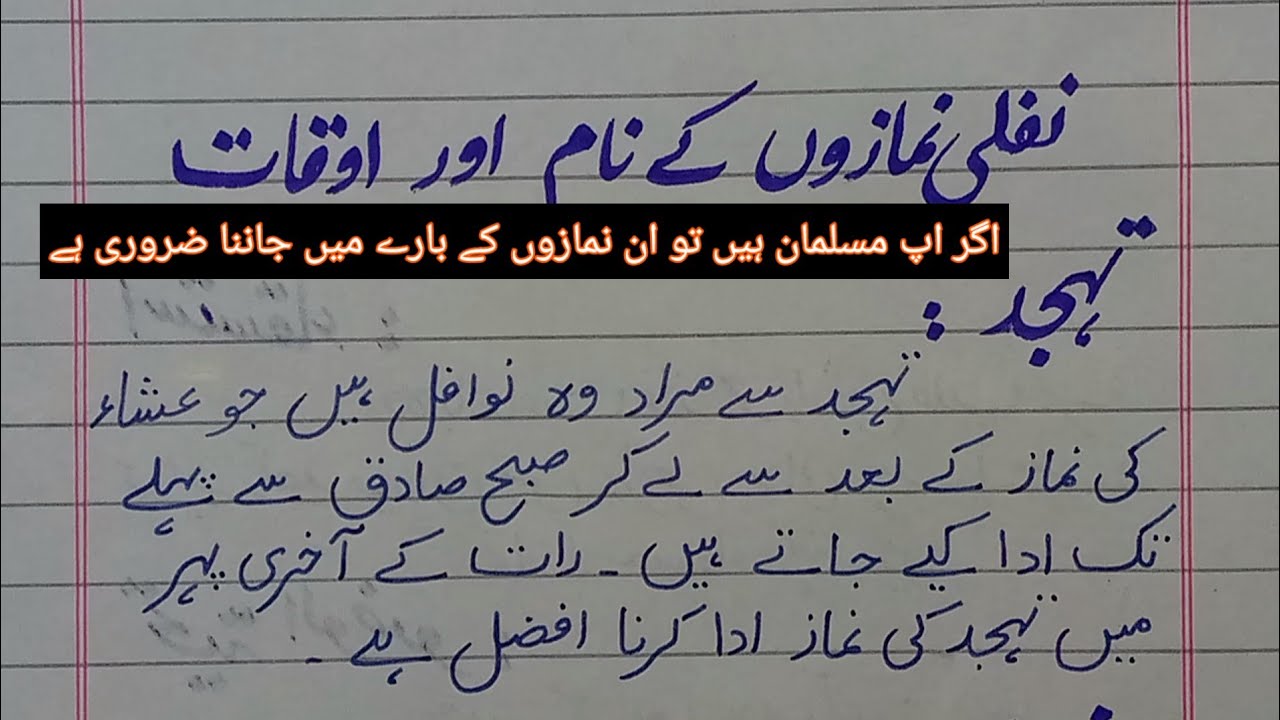 نفلی نمازوں کے نام اور اوقات
اگر اپ مسلمان ہیں تو ان نمازوں کے بارے میں جاننا ضروری ہے
تہجد :
تہجد سے مراد وہ نوافل ہیں جو عشاء
کی نماز کے بعد سے لے کر صبح صادق سے پہلے
تک ادا کیے جاتے ہیں ۔ رات کے آخری پہر
میں تہجد کی نماز ادا کرنا افضل ہے ۔